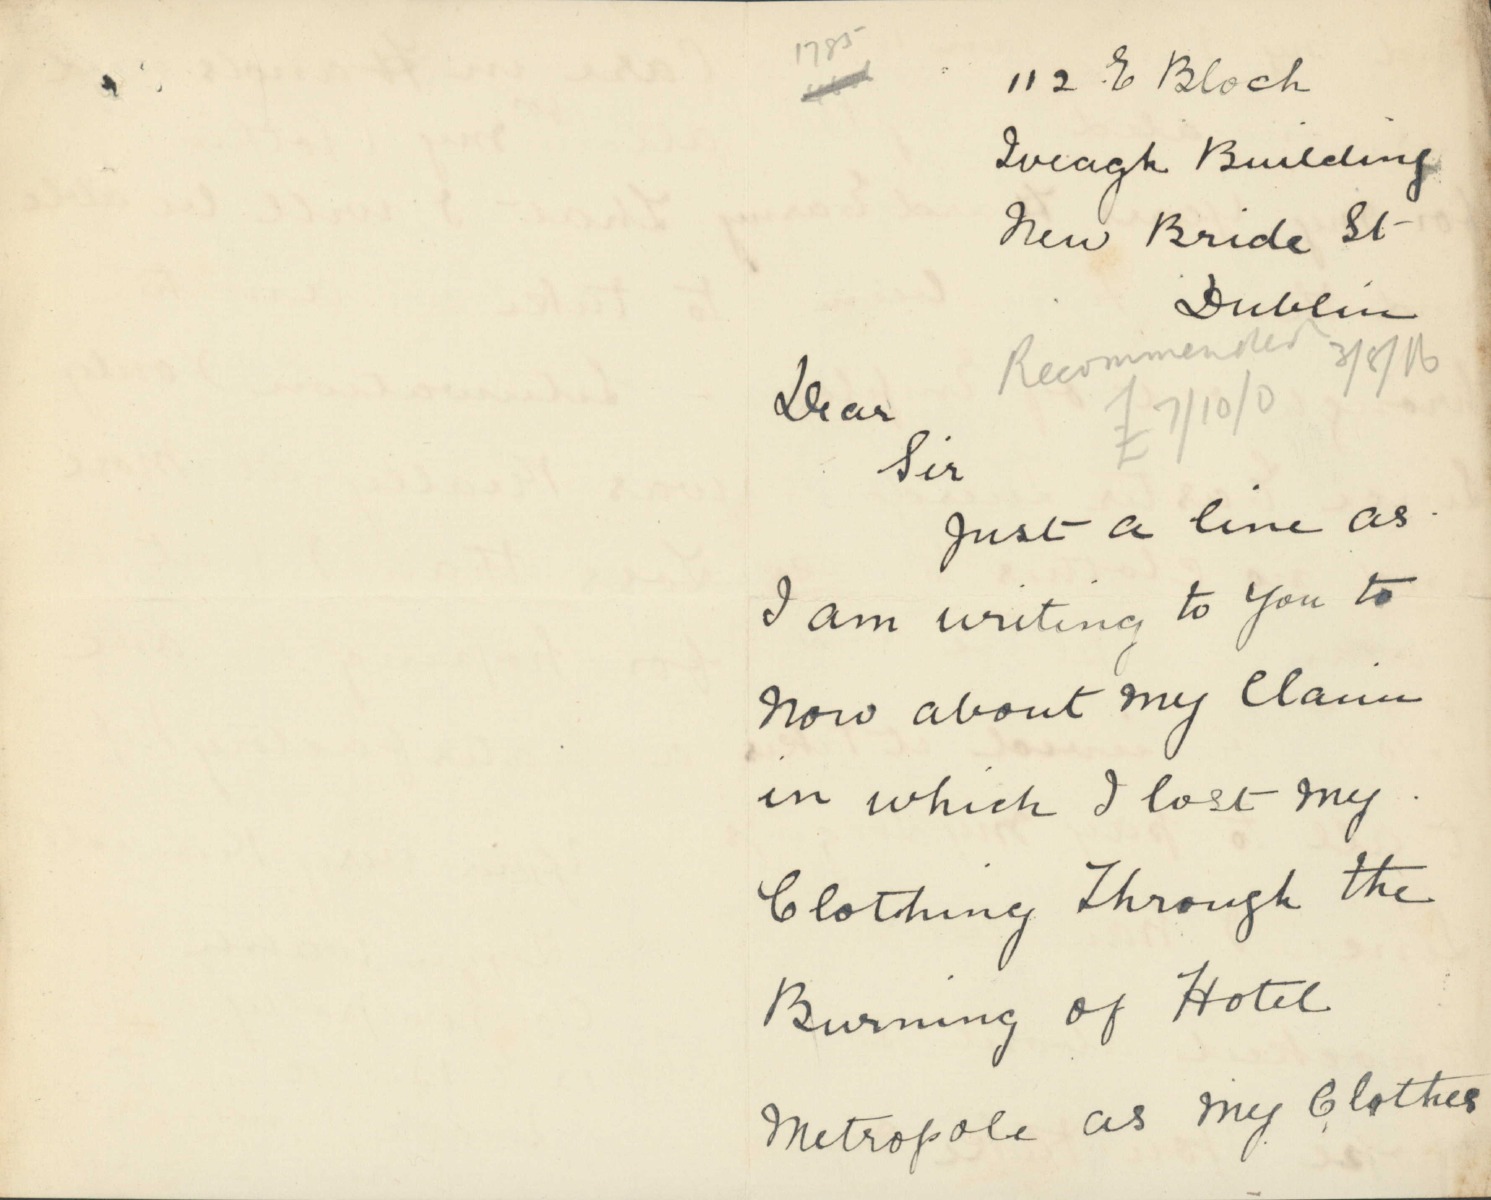 1785
112 E Bloch
Iveagh Building
New Bride St
Dublin
Recommended 3/8/16
£7/10/0
Dear
Sir
Just a line as
I am writing to you to
Now about my Claim
in which I lost my
Clothing Through the
Burning of Hotel
Metropole as my Clothes